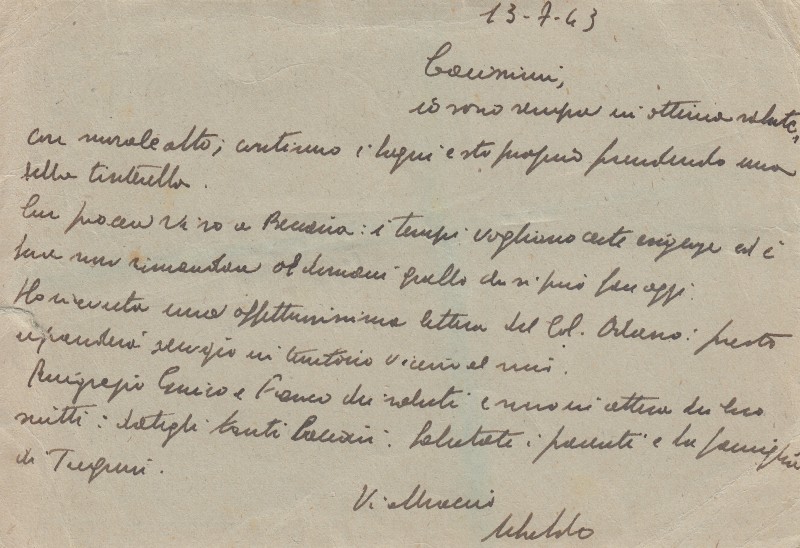 13-7-43
Carissimi,
io sono sempre in ottima salute,
con morale alto; continuo i bagni e sto proprio prendendo una
bella tinterella.
a Beccaria: i tempi vogliono certe esigenze ed è
bene non rimandare al domani quello che si può fare oggi.
Ho ricevuta una affettuosissima lettera del Col. Adamo: presto
riprenderà servizio in territorio vicino al mio.
Ringrazio Enrico e Franco dei saluti e sono in attesa dei loro
scritti: dategli tanti bacioni. Salutate i parenti e la famiglia
di
Vi abbraccio
Ubaldo